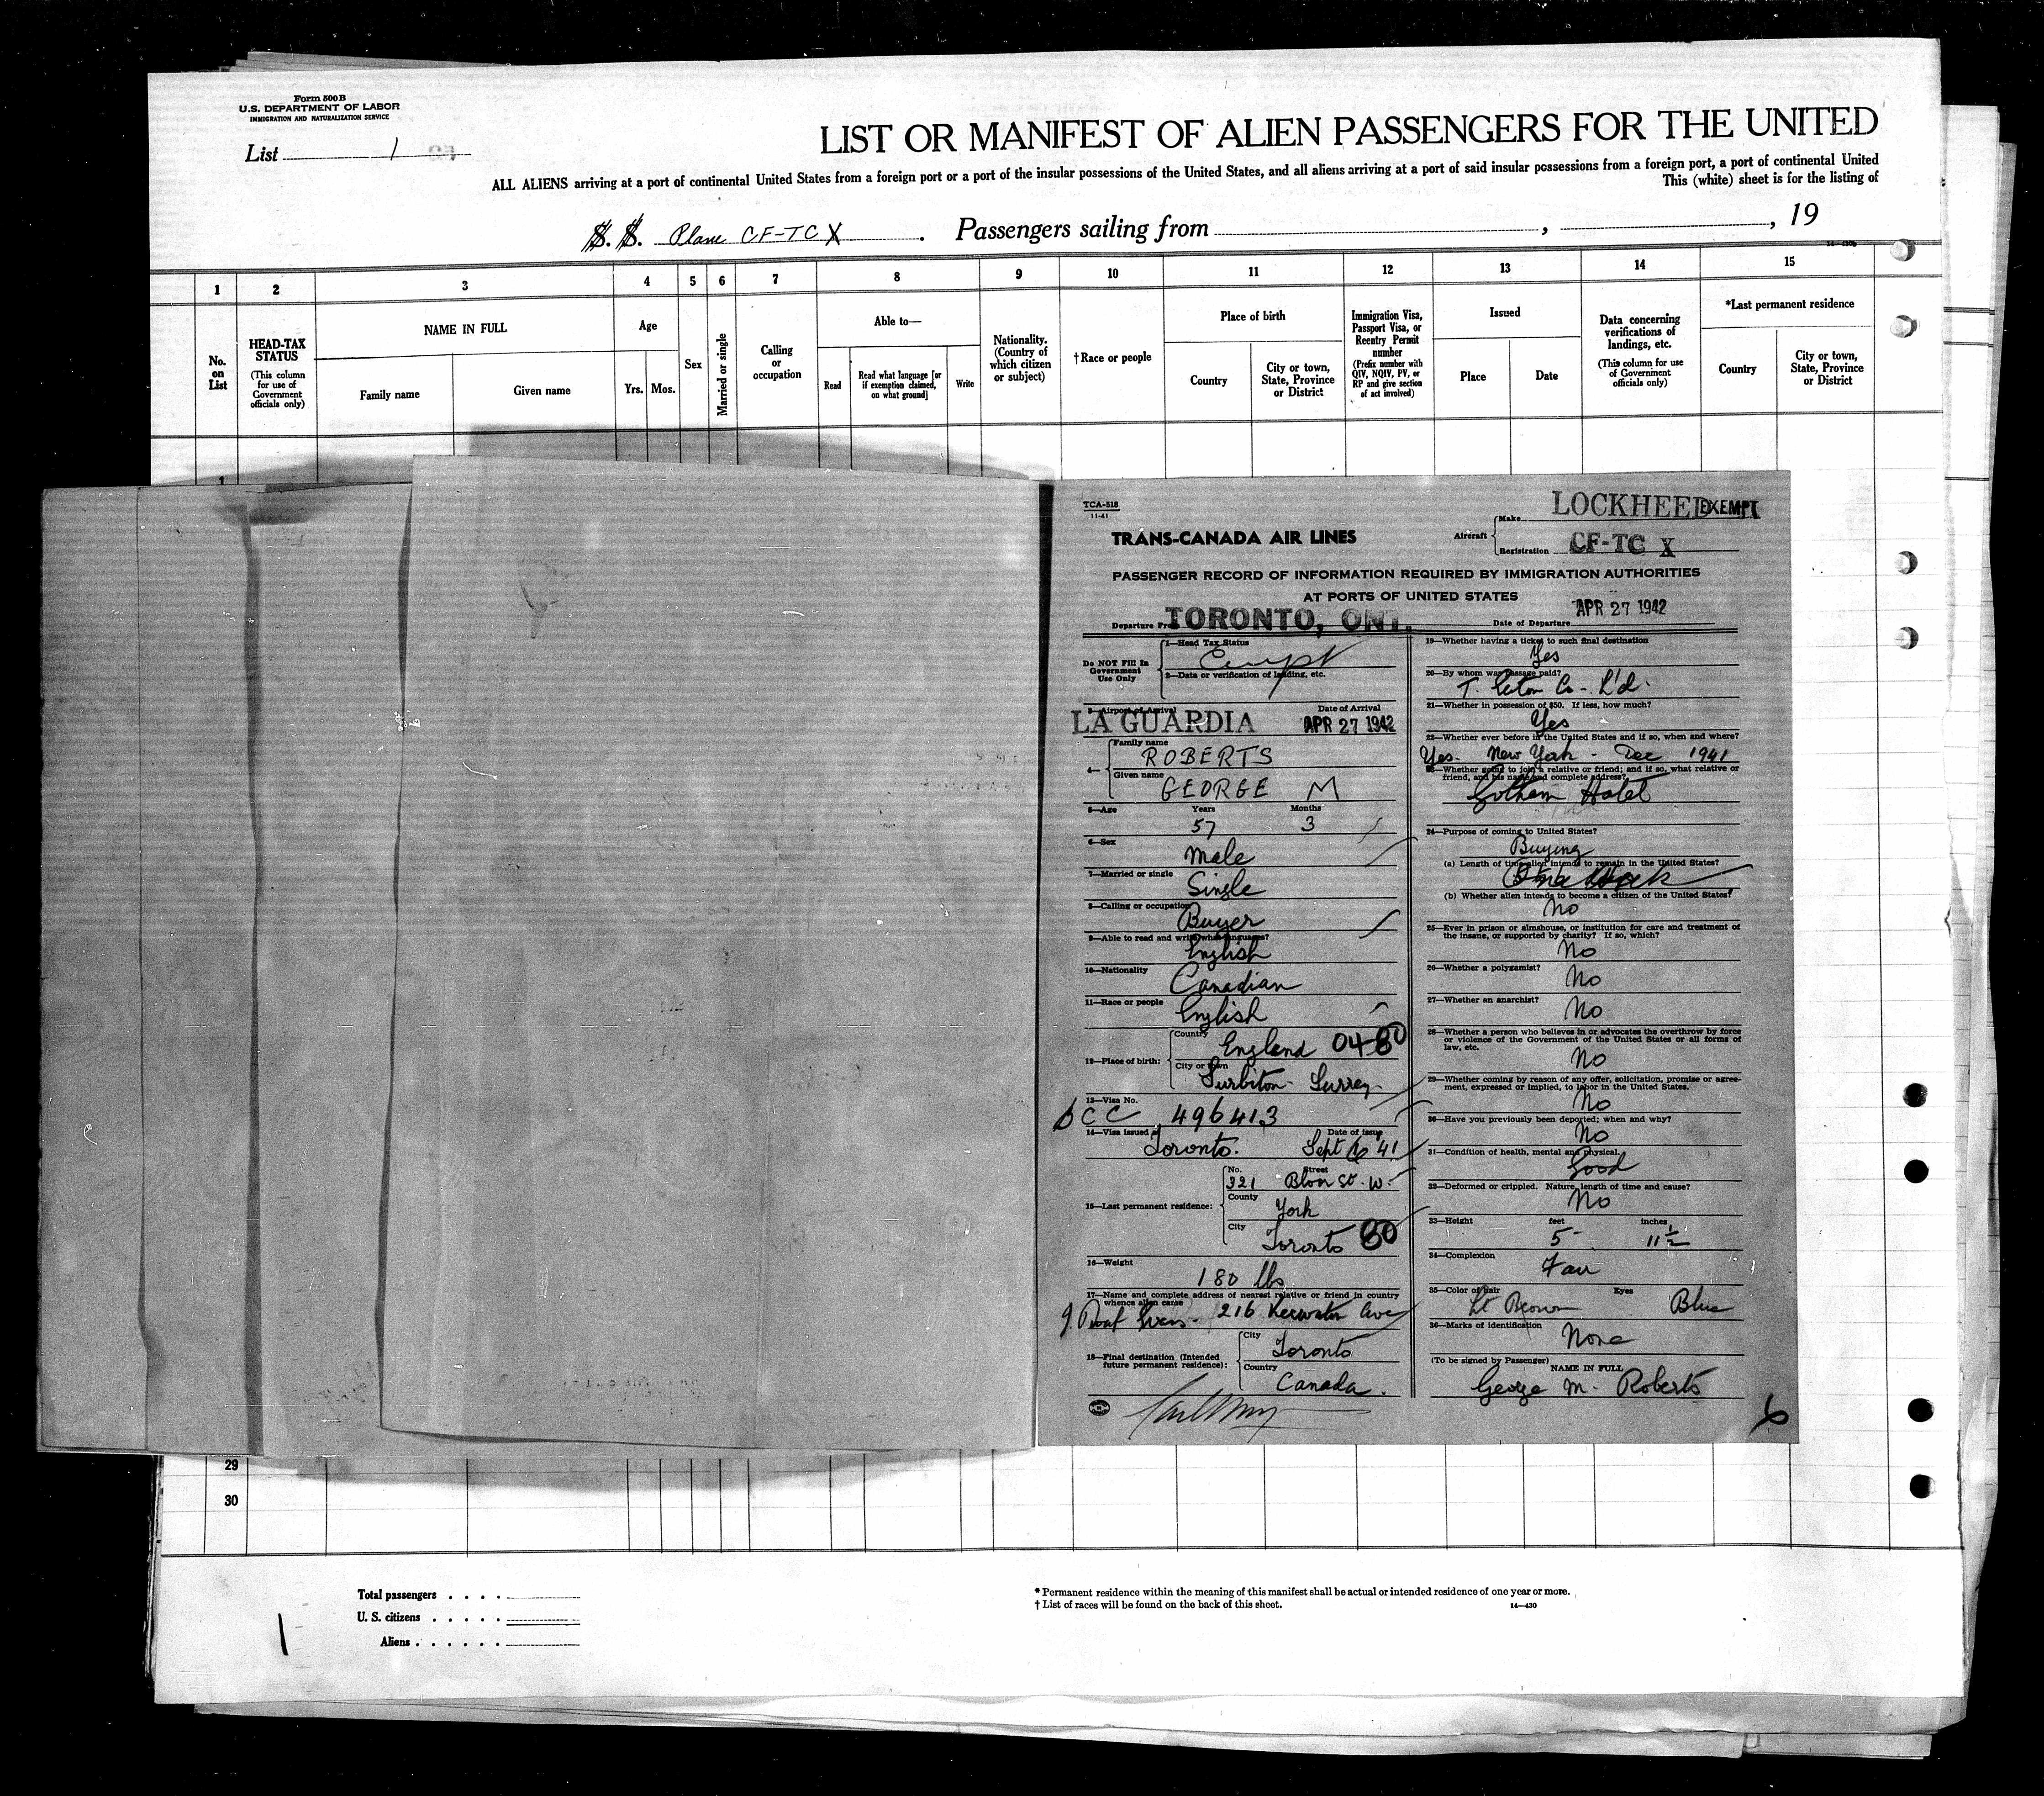 Form 500B
U.S. DEPARTMENT OF LABOR
IMMIGRATION AND NATURALIZATION SERVICE
List 1
LIST OR MANIFEST OF ALIEN PASSENGERS FOR THE UNITED
ALL ALIENS arriving at a port of continental United States from a foreign port or a port of the insular possessions of the United States, and all aliens arriving at a port of said insular possessions from a foreign port, a port of continental United
This (white) sheet is for the listing of
S. S. Plane CF-TCX. Passengers sailing from , , 19
1 2 3 4 5 6 7 8 9 10 11 12 13 14 15
No. on List
HEAD-TAX STATUS
(This column for use of Government officials only)
NAME IN FULL
Family name
Given name
Age
Yrs. Mos.
Sex
Married or single
Calling or occupation
Able to—
Read
Read what language [or if exemption claimed, on what ground]
Write
Nationality. (Country of which citizen or subject)
†Race or people
Place of birth
Country
City or town, State, Province or District
Immigration Visa, Passport Visa, or Reentry Permit number
(Prefix number with QIV, NQIV, PV, or RP and give section of act involved)
Issued
Place
Date
Data concerning verifications of landings, etc.
(This column for use of Government officials only)
*Last permanent residence
Country
City or town, State, Province or District
TCA-518
11-41
TRANS-CANADA AIR LINES
Aircraft
Make LOCKHEED EXEMPT
Registration CF-TC X
PASSENGER RECORD OF INFORMATION REQUIRED BY IMMIGRATION AUTHORITIES
AT PORTS OF UNITED STATES
Departure From TORONTO, ONT.
Date of Departure APR 27 1942
Do NOT Fill In Government Use Only
1—Head Tax Status
Exempt
2—Data or verification of landing, etc.
3—Airport of Arrival
Date of Arrival
LA GUARDIA APR 27 1942
4—
Family name
ROBERTS
Given name
GEORGE M
5—Age Years Months
57 3
6—Sex
Male
7—Married or single
Single
8—Calling or occupation
Buyer
9—Able to read and write what languages?
English
10—Nationality
Canadian
11—Race or people
English
12—Place of birth:
Country
England 04-80
City or town
Surbiton - Surrey
13—Visa No.
BCC 496413
14—Visa issued at Date of issue
Toronto. Sept 16 41
15—Last permanent residence:
No. Street
321 Bloor St. W.
County
York
City
Toronto 80
16—Weight
180 lbs
17—Name and complete address of nearest relative or friend in country whence alien came
216 Keewatin Ave
18—Final destination (Intended future permanent residence):
City
Toronto
Country
Canada.
19—Whether having a ticket to such final destination
Yes
20—By whom was passage paid?
T. Eaton Co - L'd.
21—Whether in possession of $50. If less, how much?
Yes
22—Whether ever before in the United States and if so, when and where?
Yes - New York - Dec 1941
23—Whether going to join a relative or friend; and if so, what relative or
friend, and his name and complete address?
Gotham Hotel
24—Purpose of coming to United States?
Buying
(a) Length of time alien intends to remain in the United States?
One Week
(b) Whether alien intends to become a citizen of the United States?
No
25—Ever in prison or almshouse, or institution for care and treatment of
the insane, or supported by charity? If so, which?
No
26—Whether a polygamist?
No
27—Whether an anarchist?
No
28—Whether a person who believes in or advocates the overthrow by force
or violence of the Government of the United States or all forms of
law, etc.
No
29—Whether coming by reason of any offer, solicitation, promise or agree-
ment, expressed or implied, to labor in the United States.
No
30—Have you previously been deported; when and why?
No
31—Condition of health, mental and physical.
Good
32—Deformed or crippled. Nature, length of time and cause?
No
33—Height feet inches
5 11½
34—Complexion
Fair
35—Color of Hair Eyes
Lt Brown Blue
36—Marks of identification
None
(To be signed by Passenger)
NAME IN FULL
George M. Roberts
6
29
30
Total passengers . . . .
U. S. citizens . . . . .
Aliens . . . . . .
1
* Permanent residence within the meaning of this manifest shall be actual or intended residence of one year or more.
† List of races will be found on the back of this sheet.
14—430